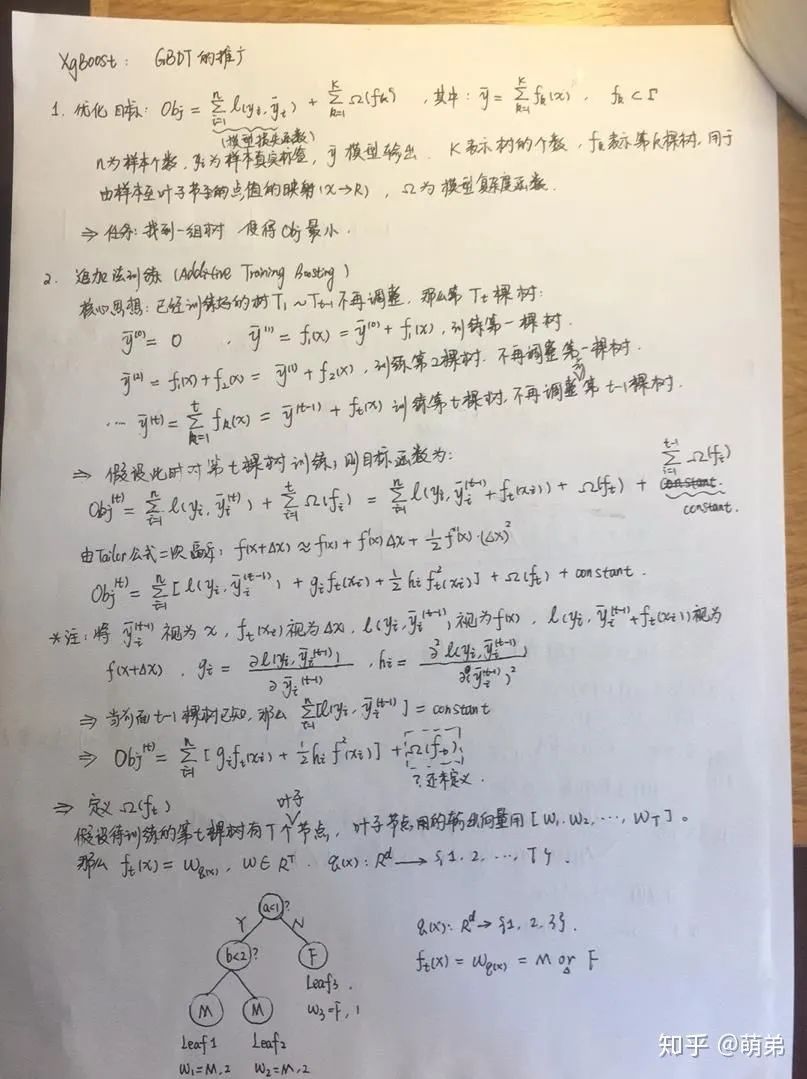 XgBoost: GBDT的推广
1. 优化目标: Obj = Σ_{i=1}^{n} l(y_i, ȳ_i) + Σ_{k=1}^{K} Ω(f_k), 其中: ȳ = Σ_{k=1}^{K} f_k(x), f_k < Γ
(模型损失函数)
n为样本个数, y_i为样本真实标签, ȳ 模型输出. K表示树的个数, f_k表示第k棵树, 用于
由样本至叶子节点的点值的映射(x→R), Ω为模型复杂度函数.
⇒ 任务: 找到一组树 使得Obj最小.
2. 追加法训练 (Additive Training Boosting)
核心思想: 已经训练好的树T_1 ~ T_{t-1}不再调整, 那么第T_t棵树:
ȳ^{(0)} = 0 , ȳ^{(1)} = f_1(x) = ȳ^{(0)} + f_1(x), 训练第一棵树.
ȳ^{(2)} = f_1(x) + f_2(x) = ȳ^{(1)} + f_2(x), 训练第2棵树. 不再调整第一棵树.
... ȳ^{(t)} = Σ_{k=1}^{t} f_k(x) = ȳ^{(t-1)} + f_t(x) 训练第t棵树, 不再调整第t-1棵树.
⇒ 假设此时对第t棵树训练, 则目标函数为:
Obj^{(t)} = Σ_{i=1}^{n} l(y_i, ȳ_i^{(t)}) + Σ_{i=1}^{t} Ω(f_i) = Σ_{i=1}^{n} l(y_i, ȳ_i^{(t-1)} + f_t(x_i)) + Ω(f_t) + Σ_{i=1}^{t-1} Ω(f_i)
constant.
由Tailor公式二次展开: f(x+Δx) ≈ f(x) + f'(x)Δx + ½f''(x)·(Δx)²
Obj^{(t)} = Σ_{i=1}^{n} [l(y_i, ȳ_i^{(t-1)}) + g_i f_t(x_i) + ½h_i f_t²(x_i)] + Ω(f_t) + constant.
*注: 将 ȳ_i^{(t-1)} 视为x, f_t(x_i)视为Δx, l(y_i, ȳ_i^{(t-1)})视为f(x), l(y_i, ȳ_i^{(t-1)} + f_t(x_i))视为
f(x+Δx), g_i = ∂l(y_i, ȳ_i^{(t-1)}) / ∂ȳ_i^{(t-1)}, h_i = ∂²l(y_i, ȳ_i^{(t-1)}) / ∂(ȳ_i^{(t-1)})²
⇒ 当前面t-1棵树已知, 那么 Σ_{i=1}^{n}[l(y_i, ȳ_i^{(t-1)})] = constant
⇒ Obj^{(t)} = Σ_{i=1}^{n} [g_i f_t(x_i) + ½h_i f²(x_i)] + Ω(f_t)
? 还未定义.
⇒ 定义Ω(f_t)
假设待训练的第t棵树有T个叶子节点, 叶子节点用的输出向量用[W_1, W_2, ..., W_T].
那么 f_t(x) = W_{q(x)}, W∈R^T. q(x): R^d → {1, 2, ..., T}.
a<1?
Y N
b<2? F
Leaf3.
W_3=F, 1
M M
Leaf1 Leaf2
W_1=M, 2 W_2=M, 2
q(x): R^d → {1, 2, 3}.
f_t(x) = W_{q(x)} = M or F
知乎 @萌弟